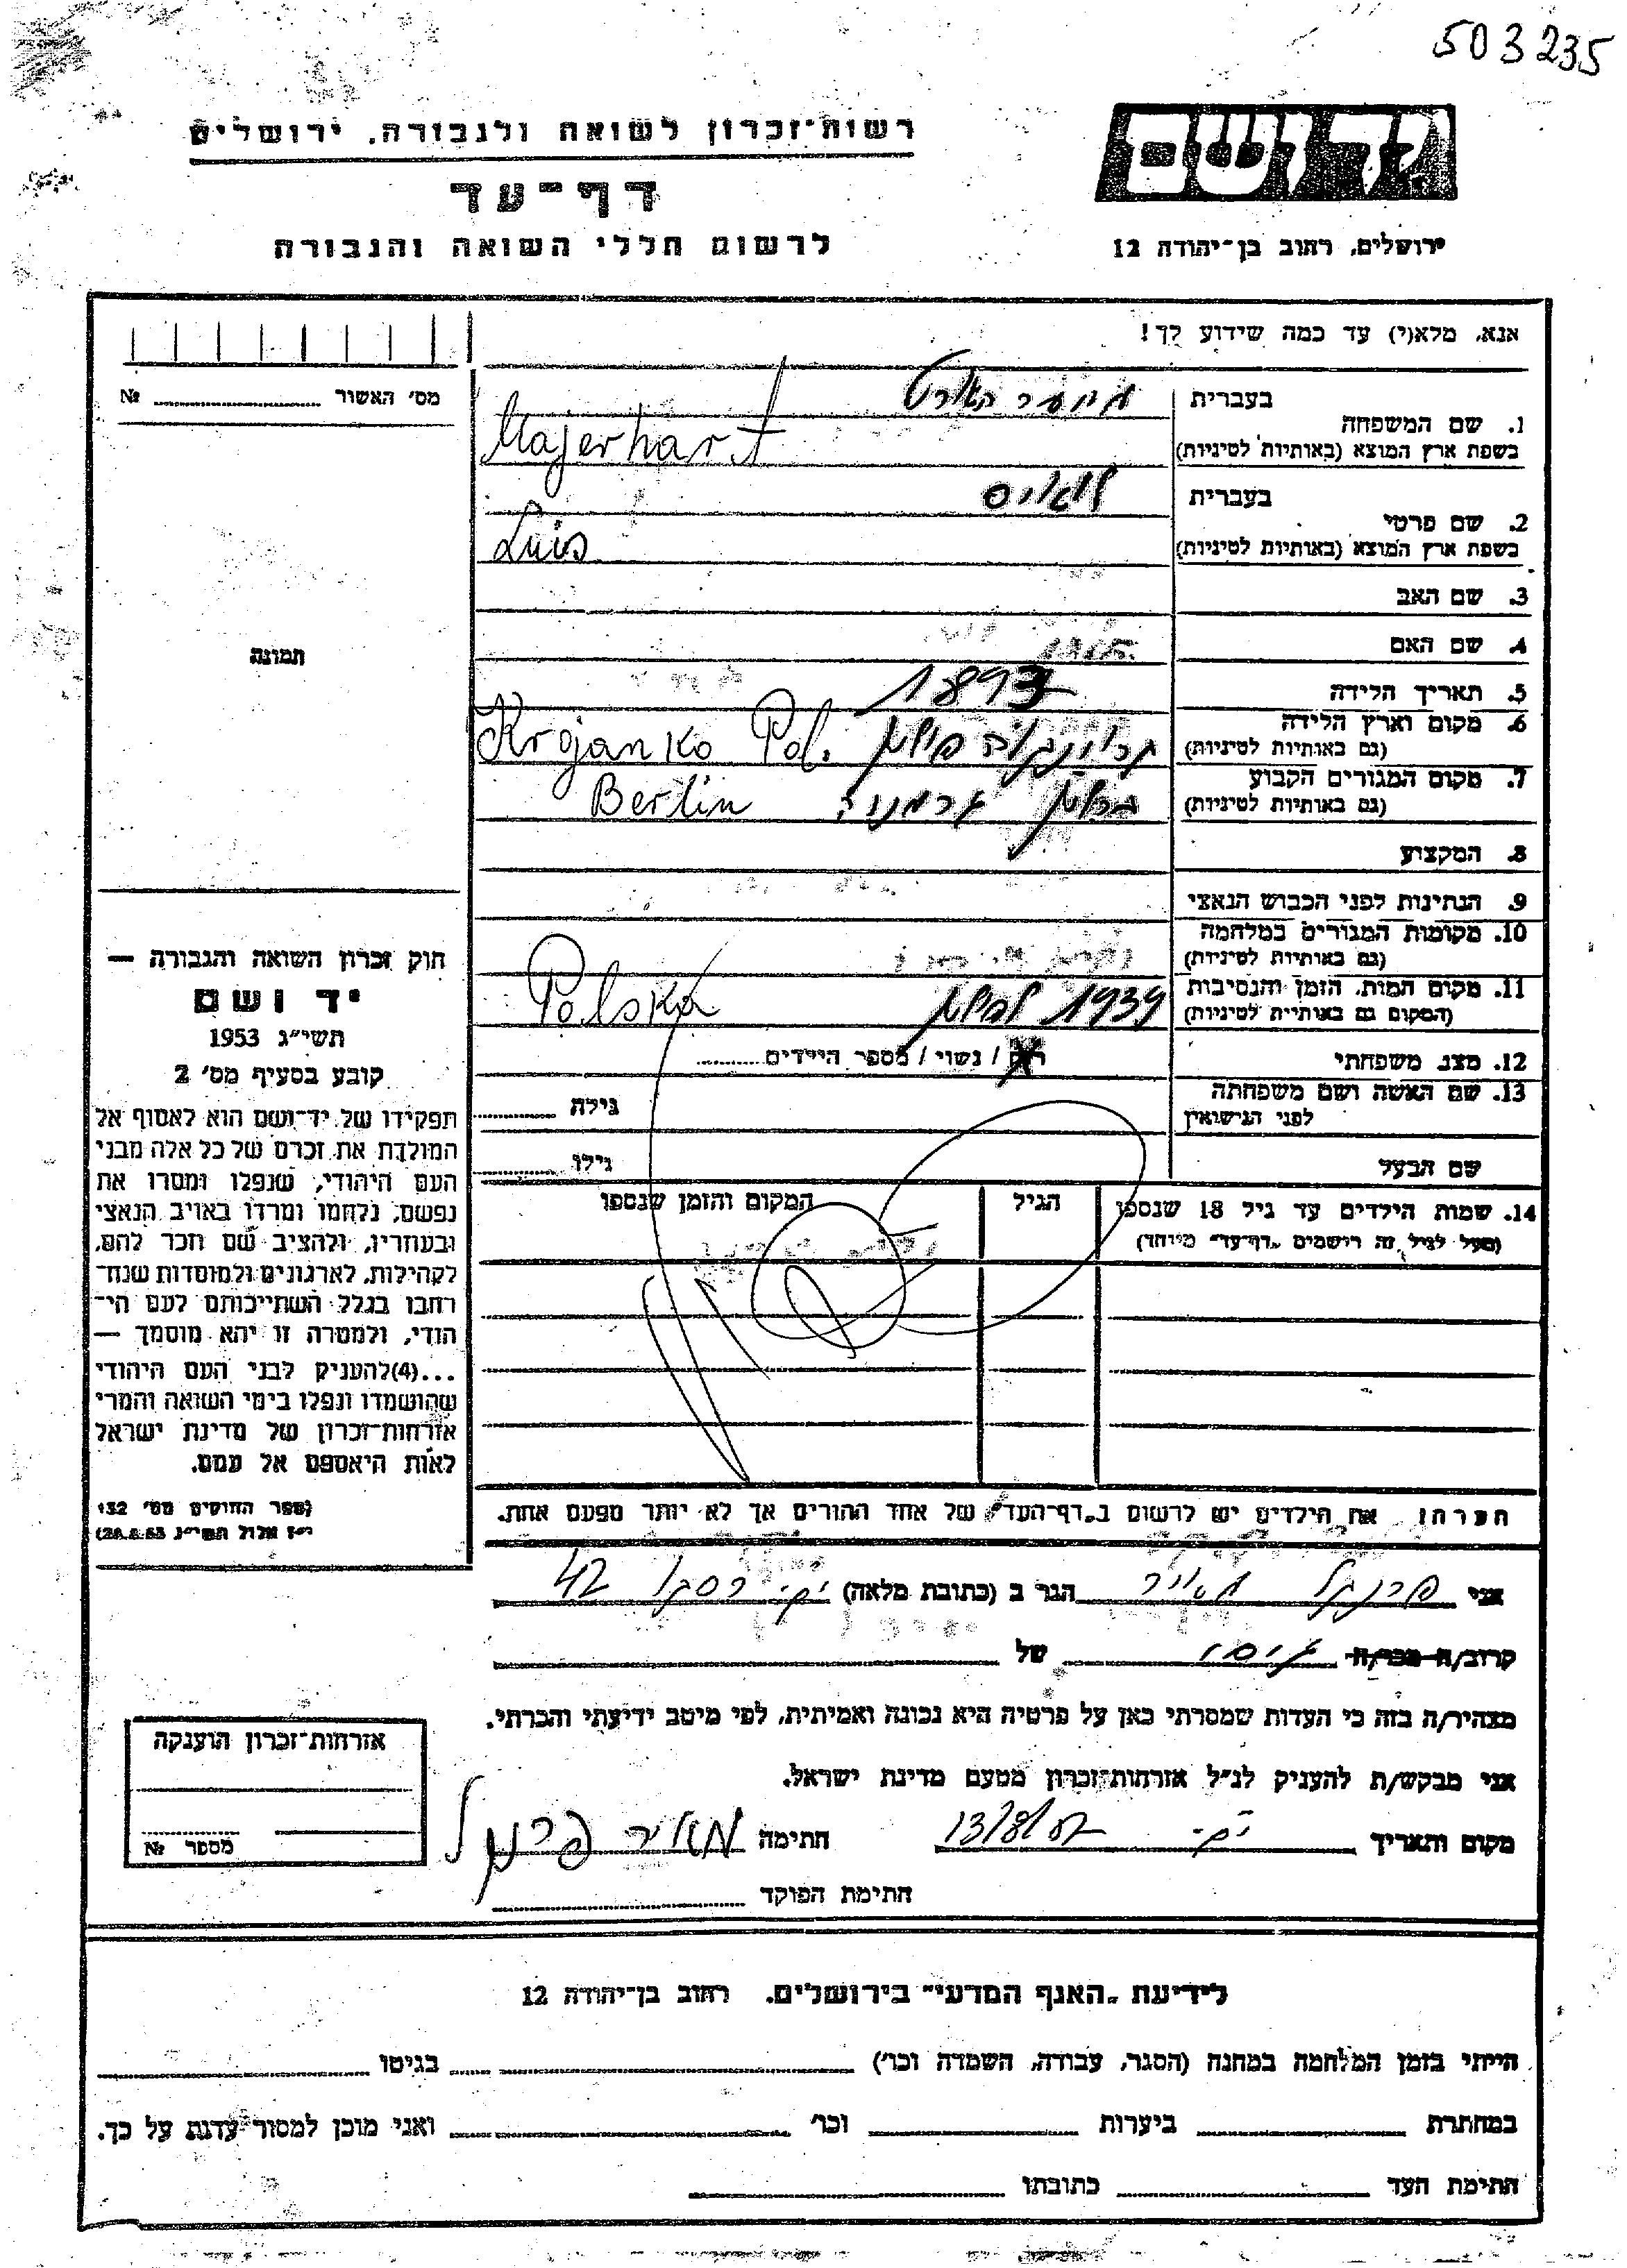 503235
יד ושם
רשות־זכרון לשואה ולגבורה, ירושלים
דף־עד
לרשום חללי השואה והגבורה
ירושלים, רחוב בן־יהודה 12
אנא, מלא(י) עד כמה שידוע לך!
מס' האשור № 
בעברית
1. שם המשפחה
בשפת ארץ המוצא (באותיות לטיניות) Majerhart
בעברית לואיס
2. שם פרטי
בשפת ארץ המוצא (באותיות לטיניות) Luis
3. שם האב
4. שם האם
תמונה
5. תאריך הלידה 1893
6. מקום וארץ הלידה
(גם באותיות לטיניות) פולין Krojanko Pol.
7. מקום המגורים הקבוע
(גם באותיות לטיניות) ברלין גרמניה Berlin
8. המקצוע
9. הנתינות לפני הכבוש הנאצי
10. מקומות המגורים במלחמה
(גם באותיות לטיניות)
11. מקום המות, הזמן והנסיבות
(המקום גם באותיות לטיניות) 1939 Polska
12. מצב משפחתי רוק / נשוי / מספר הילדים
13. שם האשה ושם משפחתה
לפני הנישואין גילה
שם הבעל גילו
14. שמות הילדים עד גיל 18 שנספו הגיל המקום והזמן שנספו
(מעל לגיל זה רושמים "דף־עד" מיוחד)
חוק זכרון השואה והגבורה —
יד ושם
תשי"ג 1953
קובע בסעיף מס' 2
תפקידו של יד־ושם הוא לאסוף אל
המולדת את זכרם של כל אלה מבני
העם היהודי, שנפלו ומסרו את
נפשם, נלחמו ומרדו באויב הנאצי
ובעוזריו, ולהציב שם וזכר להם,
לקהילות, לארגונים ולמוסדות שנח־
רחבו בגלל השתייכותם לעם הי־
הודי, ולמטרה זו יהא מוסמך —
...(4) להעניק לבני העם היהודי
שהושמדו ונפלו בימי השואה והמרי
אזרחות־זכרון של מדינת ישראל
לאות היאספם אל עמם.
(ספר החוקים מס' 132
י"ז אלול תשי"ג 28.8.53)
הערה: את הילדים יש לרשום ב"דף־העד" של אחד ההורים אך לא יותר מפעם אחת.
אני פרנקל מאיר הגר ב (כתובת מלאה) 42
קרוב/ה מכר/ה גיסו של
מצהיר/ה בזה כי העדות שמסרתי כאן על פרטיה היא נכונה ואמיתית, לפי מיטב ידיעתי והכרתי.
אני מבקש/ת להעניק לנ"ל אזרחות־זכרון מטעם מדינת ישראל.
מקום ותאריך חתימה מאיר פרנקל
חתימת הפוקד
אזרחות־זכרון הוענקה
מספר №
לידיעת "האגף המדעי" בירושלים, רחוב בן־יהודה 12
הייתי בזמן המלחמה במחנה (הסגר, עבודה, השמדה וכו') בגיטו
במחתרת ביערות וכו' ואני מוכן למסור עדות על כך.
חתימת העד כתובתו